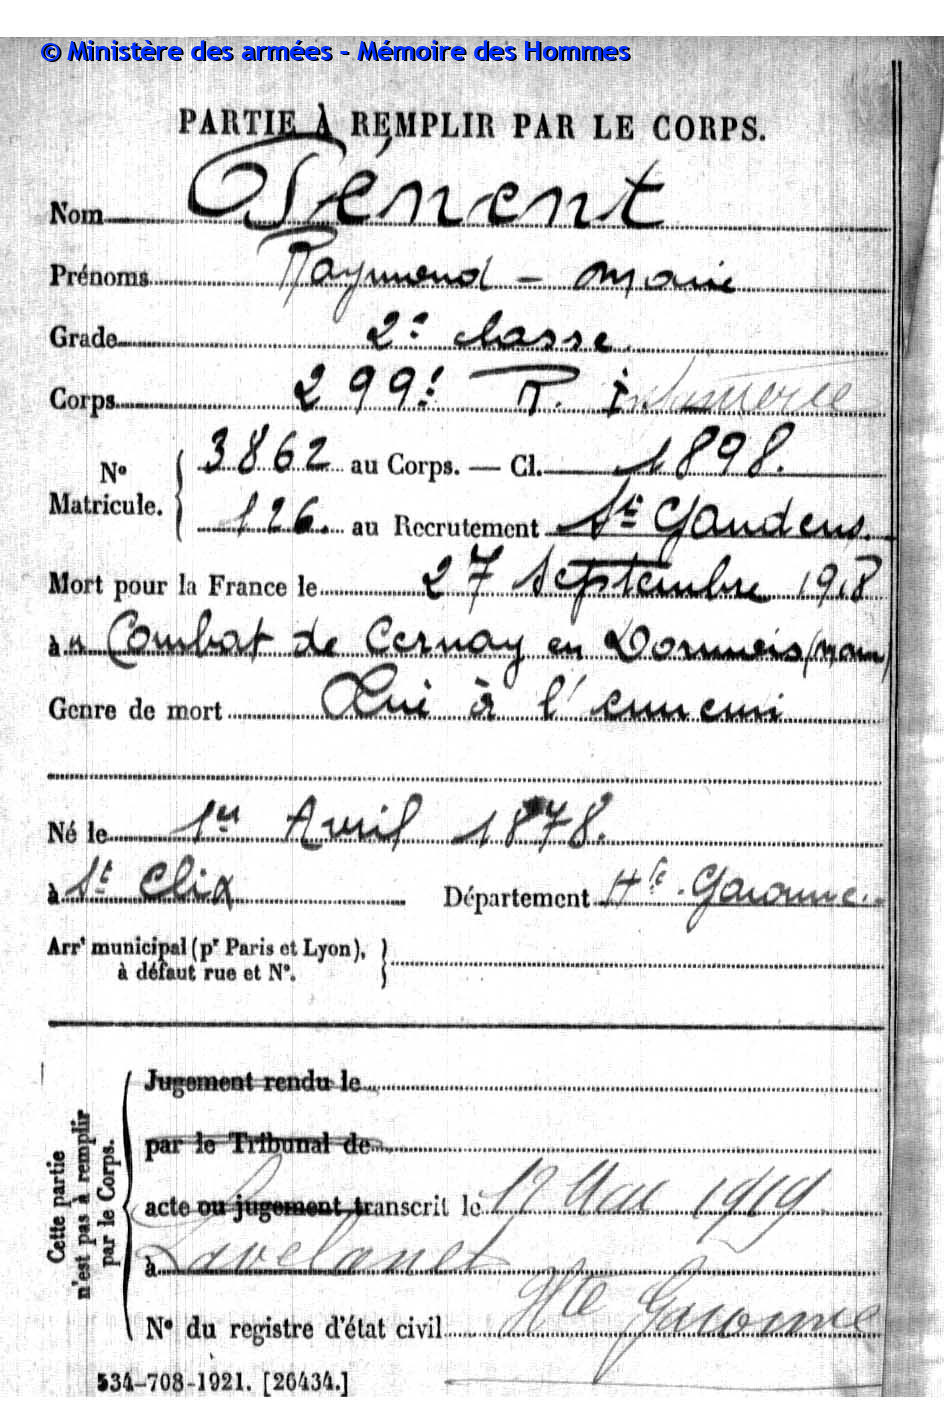 © Ministère des armées - Mémoire des Hommes
PARTIE À REMPLIR PAR LE CORPS.
Nom Pénent
Prénoms Raymond - Marie
Grade 2e classe
Corps 299e R. Infanterie
N° Matricule. 3862 au Corps. — Cl. 1898.
126. au Recrutement St Gaudens.
Mort pour la France le 27 Septembre 1918
à u Combat de Cernay en Dormois (Marne)
Genre de mort Tué à l'ennemi
Né le 1er Avril 1878.
à St Elix Département Hte. Garonne.
Arrt municipal (pr Paris et Lyon),
à défaut rue et N°.
Cette partie n'est pas à remplir par le Corps.
Jugement rendu le
par le Tribunal de
acte ou jugement transcrit le 17 Mai 1919
à Lavelanet
Hte Garonne
N° du registre d'état civil
534-708-1921. [26434.]